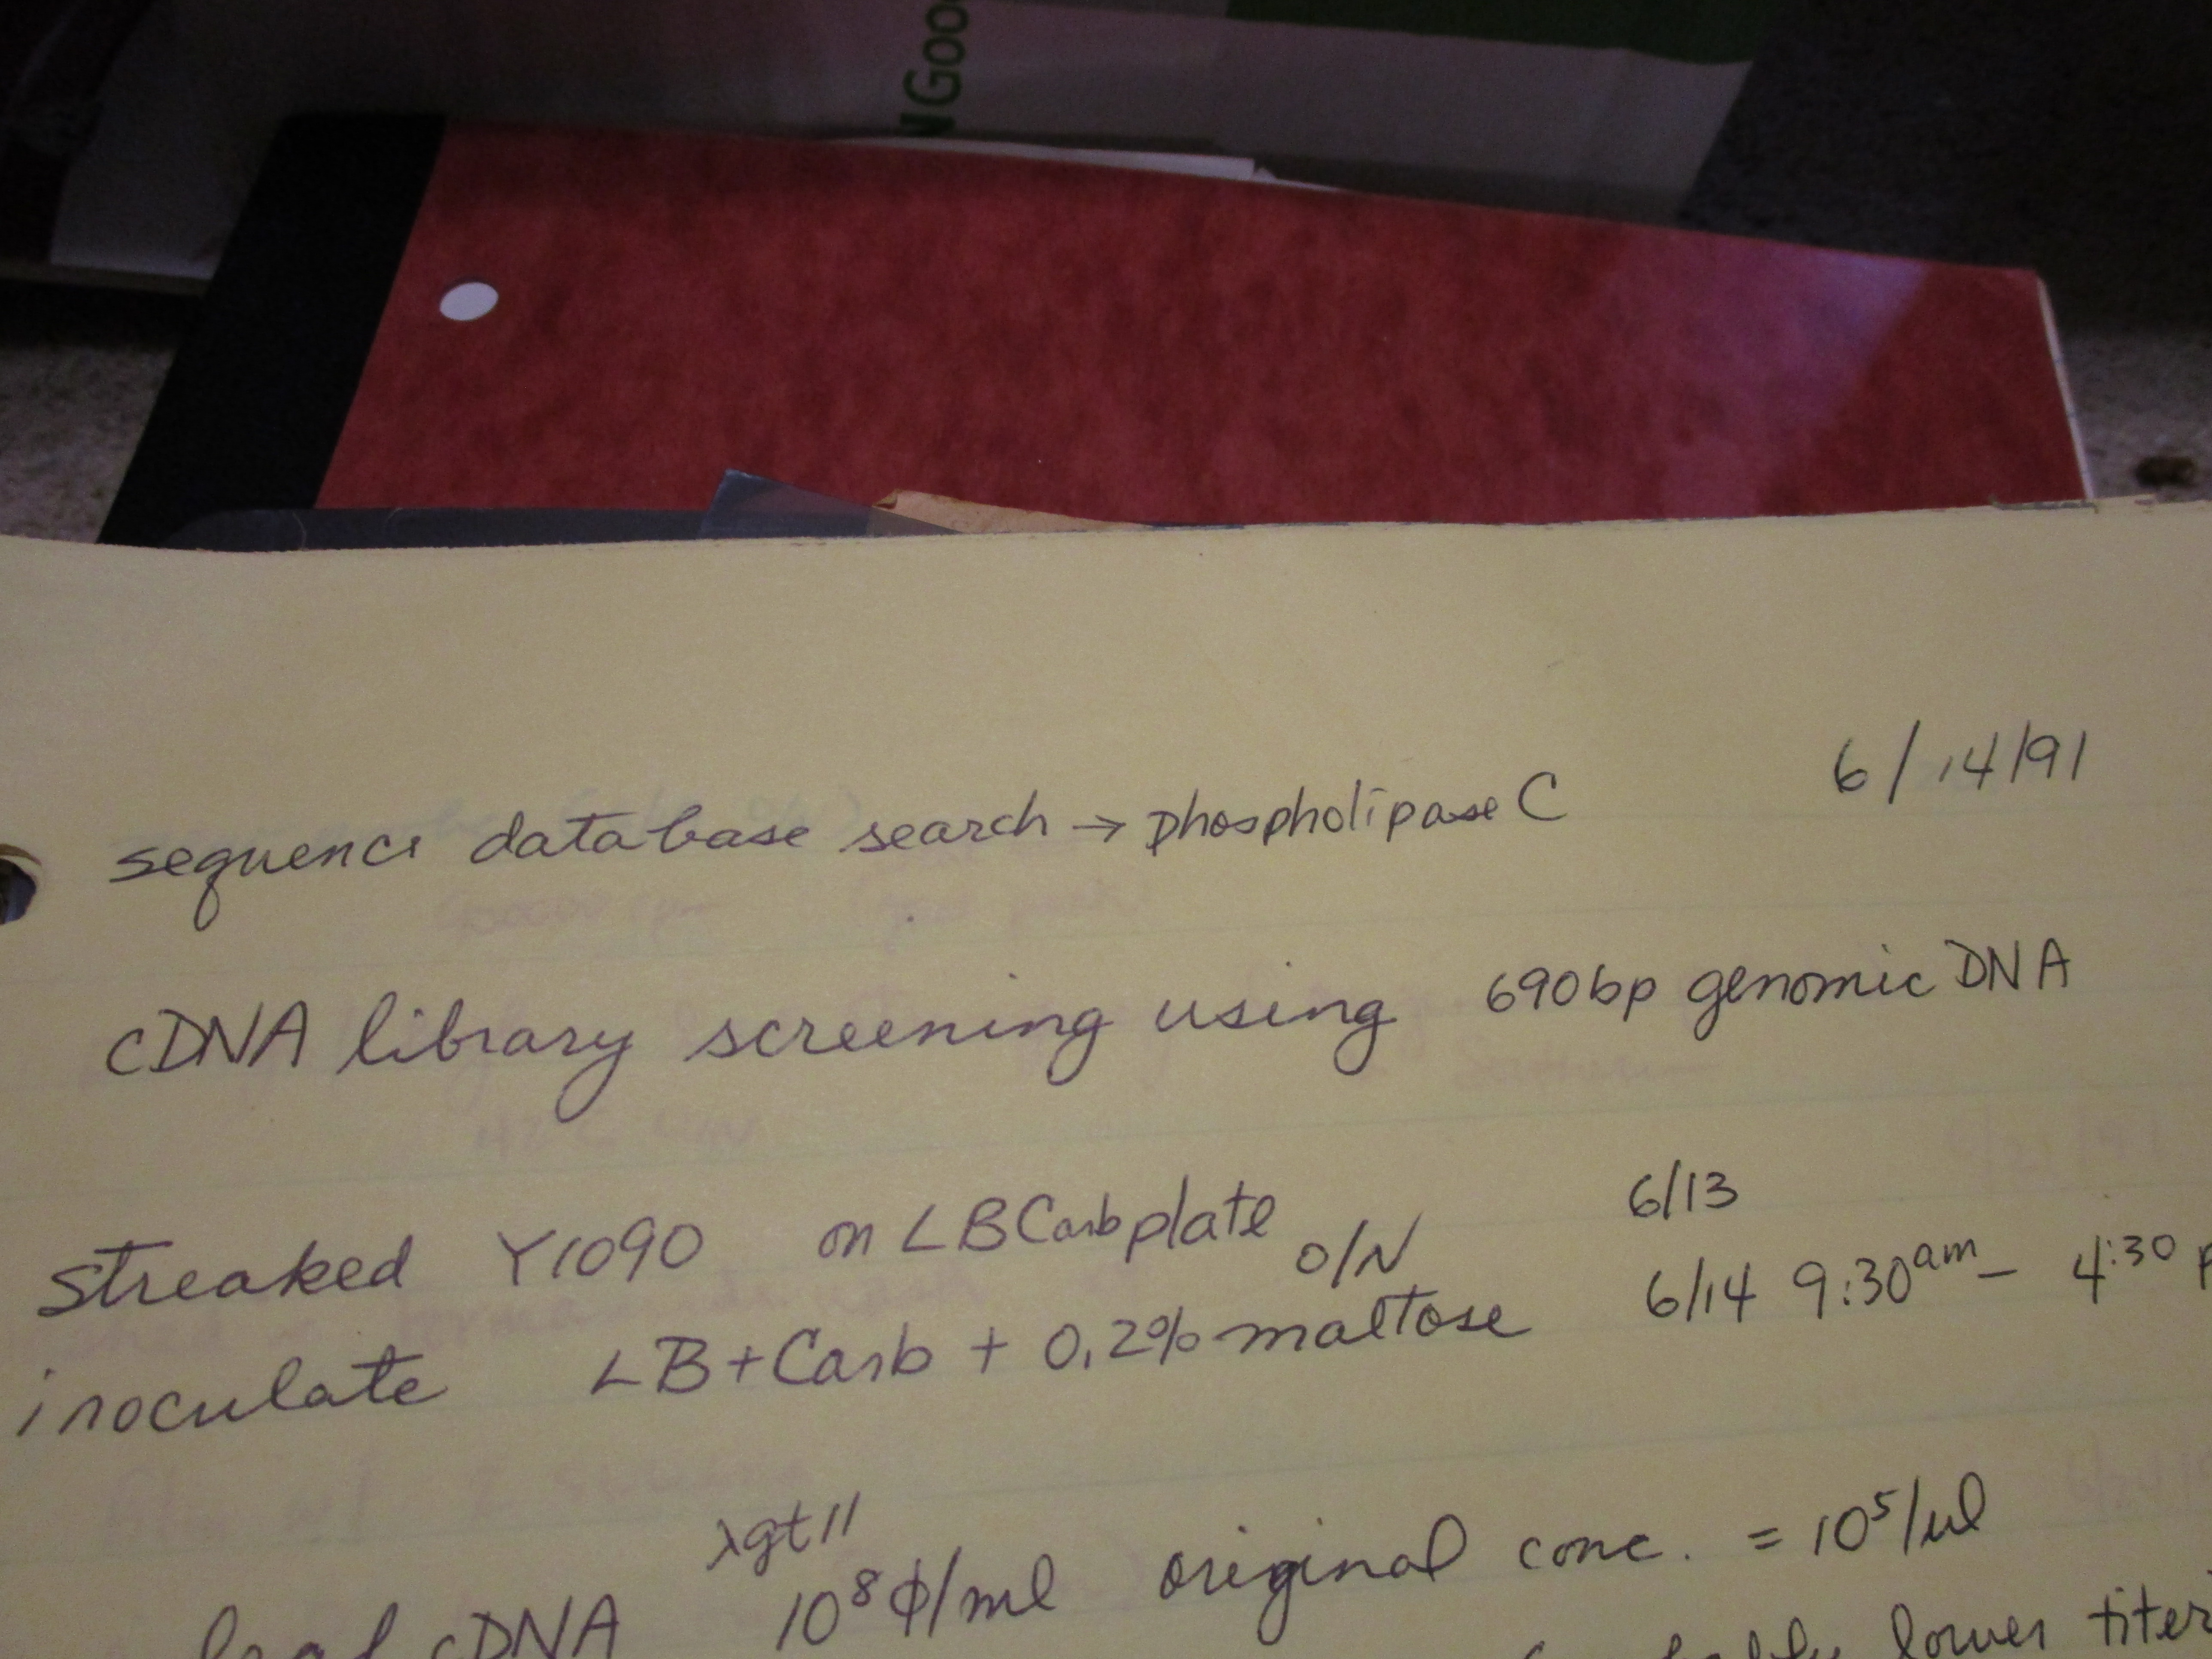 NGoo
6/14/91
sequence database search → phospholipase C
cDNA library screening using 690bp genomic DNA
streaked Y1090 on LB Carb plate 6/13
O/N
inoculate LB+Carb + 0.2% maltose 6/14 9:30am – 4:30 p
λgt11
leaf cDNA 10⁸ ϕ/ml original conc. = 10⁵/ul
lower titer